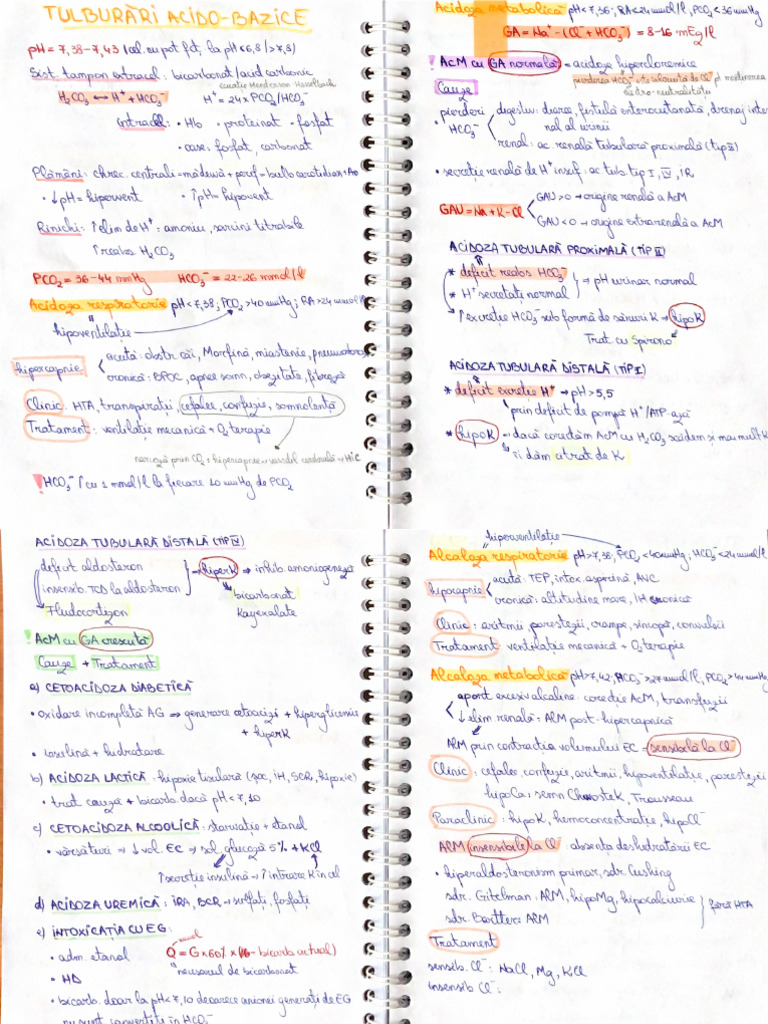 TULBURĂRI ACIDO-BAZICE
pH = 7,38-7,43 (cel. cu pot fct. la pH < 6,8 / > 7,8)
Sist. tampon extracel: bicarbonat / acid carbonic
ecuatie Henderson Hasselbalk
H₂CO₃ ⟷ H⁺ + HCO₃⁻ H⁺ = 24 x PCO₂/HCO₃⁻
intracel: • Hb • proteinat • fosfat
• oase: fosfat, carbonat
Plămâni: chrec. centrali = măduvă + perif = bulb carotidian + Ao
• ↓pH = hipervent • ↑pH = hipovent
Rinichi: ↑elim de H⁺: amoniu, sarcini titrabile
↑reabs H₂CO₃
PCO₂ = 36-44 mmHg HCO₃⁻ = 22-26 mmol/l
Acidoza respiratorie pH < 7,38; PCO₂ > 40 mmHg; RA > 24 mmol/l
hipoventilație
hipercapnie
acută: obstr căi, Morfină, miastenie, pneumotorax
cronică: BPOC, apnee somn, obezitate, fibroză
Clinic: HTA, transpirații, cefalee, confuzie, somnolență
Tratament: ventilație mecanică + O₂ terapie
narcoză prin CO₂ = hipercapnie → vasodil cerebrală → HiC
! HCO₃⁻ ↑ cu 1 mmol/l la fiecare 10 mmHg de PCO₂
Acidoza metabolică pH < 7,36; RA < 24 mmol/l, PCO₂ < 36 mmHg
GA = Na⁺ - (Cl⁻ + HCO₃⁻) = 8-16 mEq/l
! AcM cu GA normală = acidoze hipercloremice
pierderea HCO₃⁻ este înlocuită de Cl⁻ pt menținerea
electro-neutralității
Cauze
• pierderi HCO₃⁻
digestiv: diaree, fistulă enterocutanată, drenaj intestinal al urinii
renal: ac renală tubulară proximală (tip II)
• secreție renală de H⁺ insuf: ac tub tip I, IV, IR
GAU = Na + K - Cl
GAU > 0 → origine renală a AcM
GAU < 0 → origine extrarenală a AcM
ACIDOZA TUBULARĂ PROXIMALĂ (TIP II)
* deficit reabs HCO₃⁻
* H⁺ secretați normal
→ pH urinar normal
↑ excreție HCO₃⁻ sub formă de săruri K → hipoK
Trat cu Spirono
ACIDOZA TUBULARĂ DISTALĂ (TIP I)
* deficit excreție H⁺ → pH > 5,5
prin deficit de pompă H⁺/ATP-ază
* hipoK → dacă corectăm AcM cu H₂CO₃ scădem și mai mult K
îi dăm citrat de K
ACIDOZA TUBULARĂ DISTALĂ (TIP IV)
deficit aldosteron
insensib. TCD la aldosteron
→ hiperK → inhib. amoniogeneza
Fludocortizon
bicarbonat
Kayexalate
! AcM cu GA crescută
Cauze + Tratament
a) CETOACIDOZA DIABETICĂ
• oxidare incompletă AG ⇒ generare cetoacizi + hiperglicemie
+ hiperK
• insulină + hidratare
b) ACIDOZA LACTICĂ: hipoxie tisulară (șoc, IH, SCR, hipoxie)
• trat cauza + bicarb. dacă pH < 7,10
c) CETOACIDOZA ALCOOLICĂ: starvație + etanol
• vărsături ⇒ ↓vol. EC ⇒ sol. glucoză 5% + KCl
↑secreție insulină → ↑intrare K în cel
d) ACIDOZA UREMICĂ: IRA, BCR → sulfați, fosfați
e) INTOXICAȚIA CU EG:
• adm. etanol
Q = G x 60% x (16 - bicarb actual)
necesarul de bicarbonat
• HD
• bicarb. doar la pH < 7,10 deoarece anionei generați de EG
nu sunt convertiți în HCO₃⁻
hiperventilație
Alcaloza respiratorie pH > 7,38; PCO₂ < 40 mmHg; HCO₃⁻ < 24 mmol/l
hipocapnie
acută: TEP, intox. aspirină, AVC
cronică: altitudine mare, IH cronică
Clinic: aritmii, parestezii, crampe, sincopă, convulsii
Tratament: ventilație mecanică + O₂ terapie
Alcaloza metabolică pH > 7,42; HCO₃⁻ > 27 mmol/l, PCO₂ > 44 mmHg
aport excesiv alcaline: corecție AcM, transfuzii
↓ elim renală: AlM post-hipercapnică
AlM prin contracția volumului EC = sensibilă la Cl⁻
Clinic: cefalee, confuzie, aritmii, hipoventilație, parestezii
hipoCa: semn Chwostek, Trousseau
Paraclinic: hipoK, hemoconcentrație, hipoCl⁻
AlM insensibile la Cl: absența deshidratării EC
• hiperaldosteronism primar, sdr. Cushing
sdr. Gitelman: AlM, hipoMg, hipocalciurie
sdr. Bartter: AlM
fără HTA
Tratament
sensib. Cl⁻: NaCl, Mg, KCl
insensib Cl⁻: